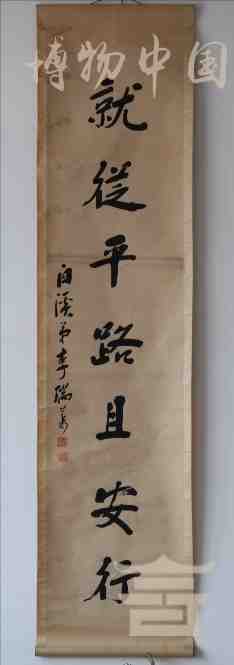 博物中国
就從平路且安行
白溪弟李瑞美